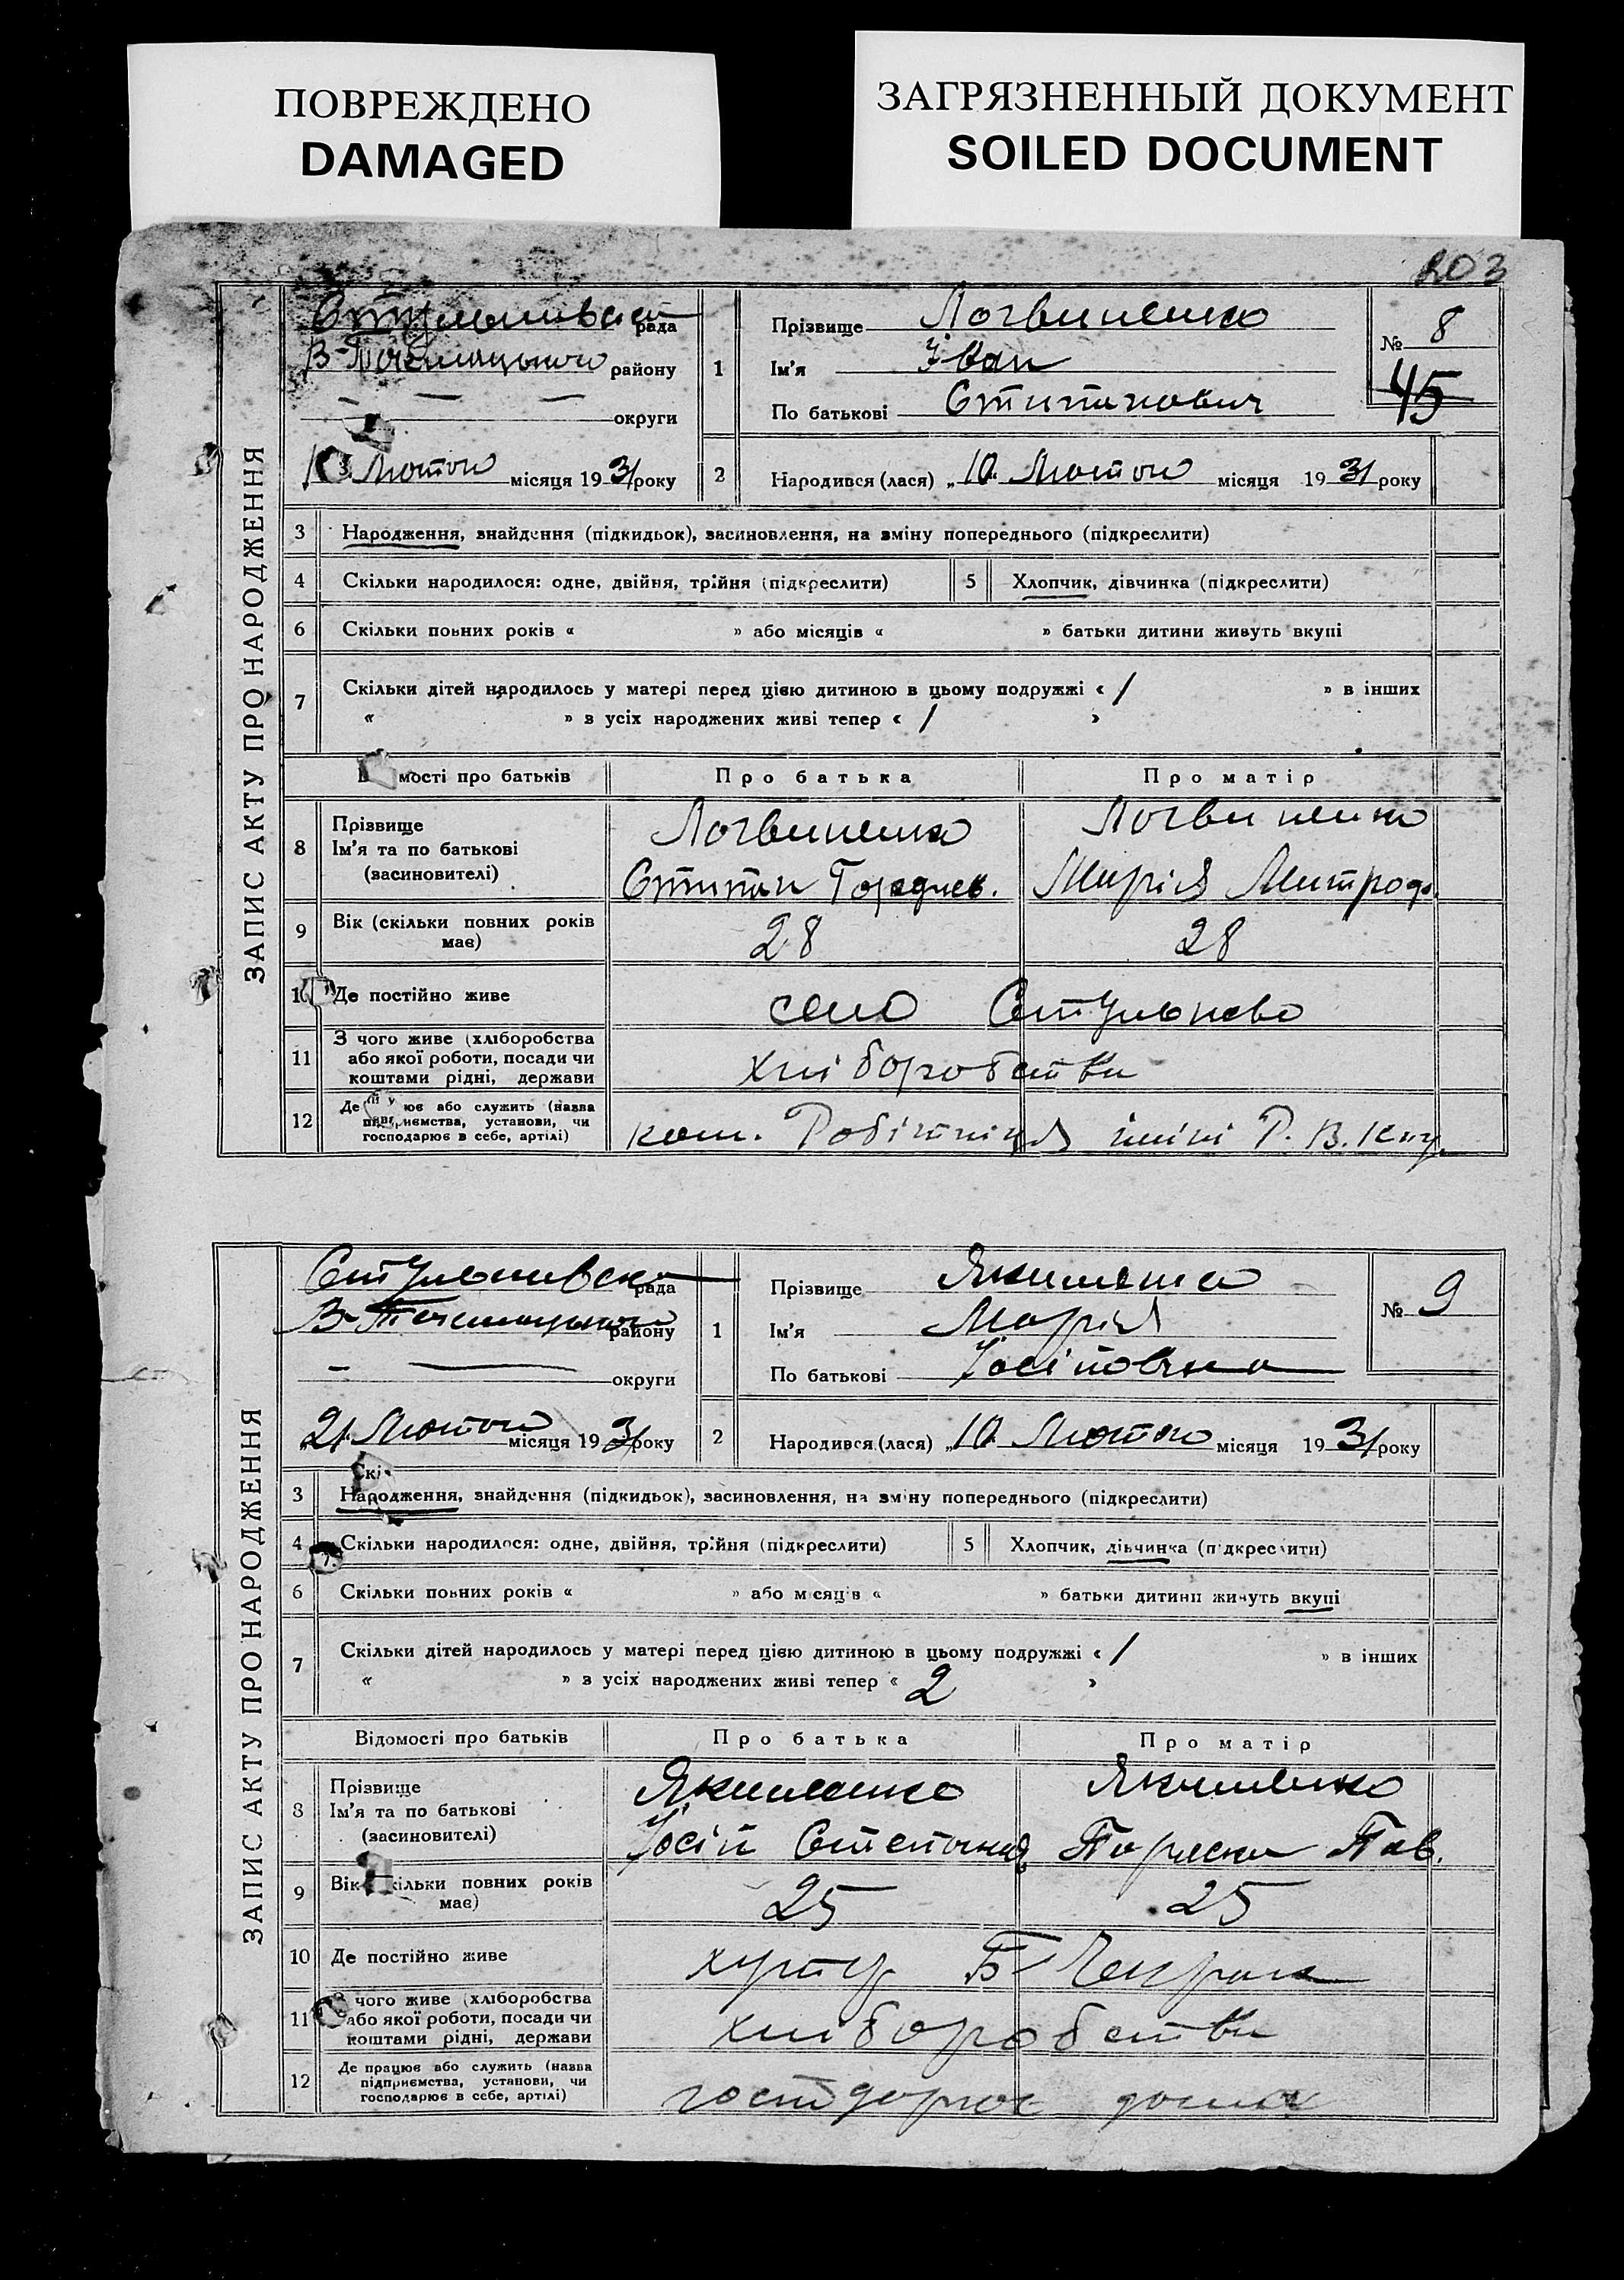 ПОВРЕЖДЕНО
DAMAGED
ЗАГРЯЗНЕННЫЙ ДОКУМЕНТ
SOILED DOCUMENT
203
ЗАПИС АКТУ ПРО НАРОДЖЕННЯ
рада
району
округи
Лютого місяця 1931 року
1 Прізвище Логвиненко
Ім'я Іван
По батькові
№ 8
45
2 Народився (лася) „10" Лютого місяця 1931 року
3 Народження, знайдення (підкидьок), засиновлення, на зміну попереднього (підкреслити)
4 Скільки народилося: одне, двійня, трійня (підкреслити) 5 Хлопчик, дівчинка (підкреслити)
6 Скільки повних років « » або місяців « » батьки дитини живуть вкупі
7 Скільки дітей народилось у матері перед цією дитиною в цьому подружжі « 1 » в інших
« » з усіх народжених живі тепер « 1 »
мості про батьків Про батька Про матір
8 Прізвище Логвиненко Логвиненко
Ім'я та по батькові
(засиновителі) Марія Митроф.
9 Вік (скільки повних років має) 28 28
10 Де постійно живе село
11 З чого живе (хліборобства
або якої роботи, посади чи хліборобства
коштами рідні, держави
12 Де ює або служить (назва
підприємства, установи, чи
господарює в себе, артілі) ком. Робітниця імені Р. В.
ЗАПИС АКТУ ПРО НАРОДЖЕННЯ
рада
району
округи
„21" Лютого місяця 1931 року
1 Прізвище Якименко
Ім'я Марія
По батькові Йосіповна
№ 9
2 Народився (лася) „10" Лютого місяця 1931 року
3 Народження, знайдення (підкидьок), засиновлення, на зміну попереднього (підкреслити)
4 Скільки народилося: одне, двійня, трійня (підкреслити) 5 Хлопчик, дівчинка (підкреслити)
6 Скільки повних років « » або місяців « » батьки дитини живуть вкупі
7 Скільки дітей народилось у матері перед цією дитиною в цьому подружжі « 1 » в інших
« » з усіх народжених живі тепер « 2 »
Відомості про батьків Про батька Про матір
8 Прізвище Якименко Якименко
Ім'я та по батькові Йосіп Пав.
(засиновителі)
9 Вік скільки повних років має) 25 25
10 Де постійно живе хутір Б
11 чого живе (хліборобства
або якої роботи, посади чи хліборобства
коштами рідні, держави
12 Де працює або служить (назва
підприємства, установи, чи
господарює в себе, артілі) господарює дома